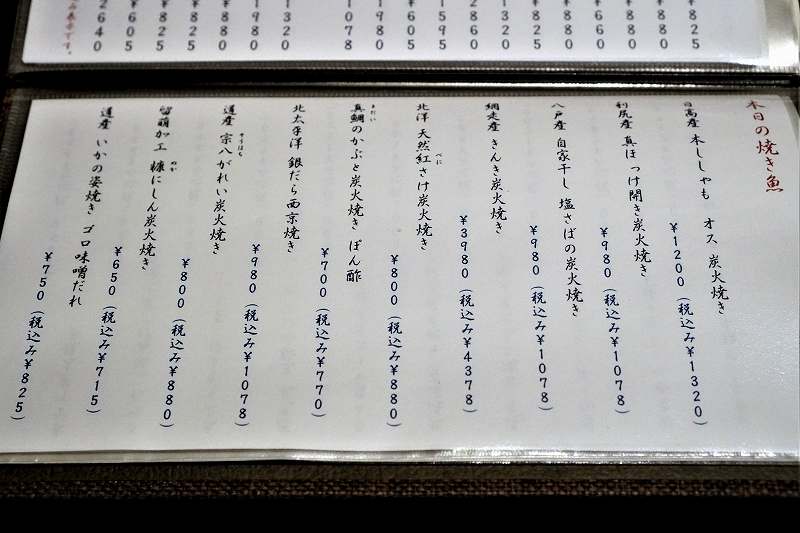 ￥825
880
880
660
880
825
880
2860
1595
605
1980
1078
1320
1980
880
825
825
605
2640
表示です。
本日の焼き魚
日高産 本ししゃも オス 炭火焼き
￥1200(税込み￥1320)
利尻産 真ほっけ開き炭火焼き
￥980(税込み￥1078)
八戸産 自家干し 塩さばの炭火焼き
￥980(税込み￥1078)
網走産 きんき炭火焼き
￥3980(税込み￥4378)
北洋 天然紅さけ炭火焼き
べに
￥800(税込み￥880)
真鯛のかぶと炭火焼き ぽん酢
まだい
￥700(税込み￥770)
北太平洋 銀だら西京焼き
￥980(税込み￥1078)
道産 宗八がれい炭火焼き
そうはち
￥800(税込み￥880)
留萌加工 糠にしん炭火焼き
ぬか
￥650(税込み￥715)
道産 いかの姿焼き ゴロ味噌だれ
￥750(税込み￥825)